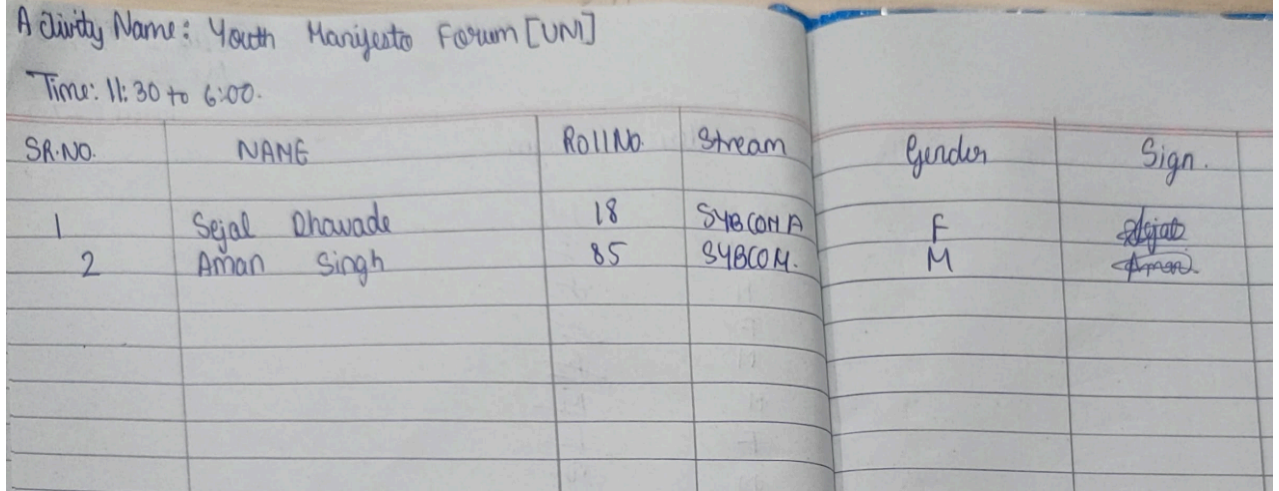 Activity Name: Youth Manifesto Forum [UNI]
Time: 11:30 to 6:00.
SR.NO. NAME Roll No. Stream Gender Sign.
1 Sejal Dhavade 18 SYBCOM A F Sejal
2 Aman Singh 85 SYBCOM. M Aman